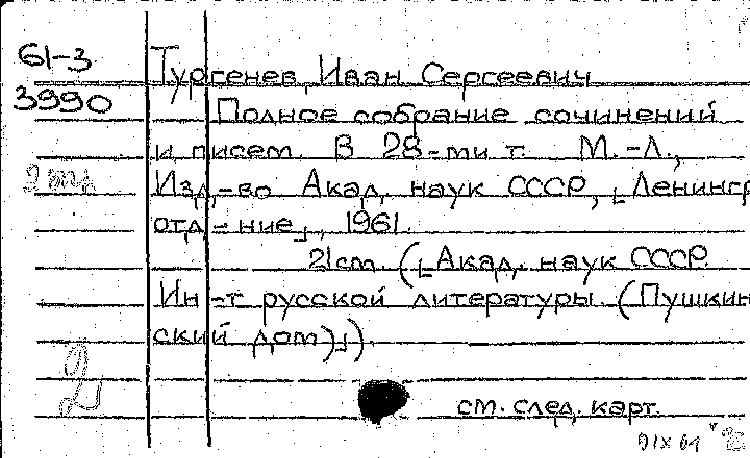 61-3 Тургенев, Иван Сергеевич
3990 Полное собрание сочинений
и писем. В 28-ми т. М.-Л.,
Изд.-во Акад. наук СССР, [Ленингр
отд-ние], 1961.
21cm. ([Акад. наук СССР.
Ин-т русской литературы (Пушкин
ский дом)]).
2
см. след. карт.